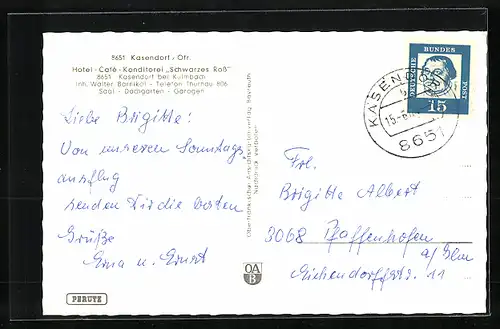 8651 Kasendorf / Ofr.
Hotel - Café - Konditorei „Schwarzes Roß"
8651 Kasendorf bei Kulmbach
Inh. Walter Barnikol - Telefon Thurnau 806
Saal - Dachgarten - Garagen
Liebe Brigitte!
Von unserem Sonntags
ausflug
senden Dir die besten
Grüße
Erna u. Ernst
PERUTZ
Nachdruck verboten
OA
B
DEUTSCHE
BUNDES
POST
15
KASENDORF
15.-6.
8651
Frl.
Brigitte Albert
3068 Pfaffenhofen
a/Ilm
Eichendorffstr. 11